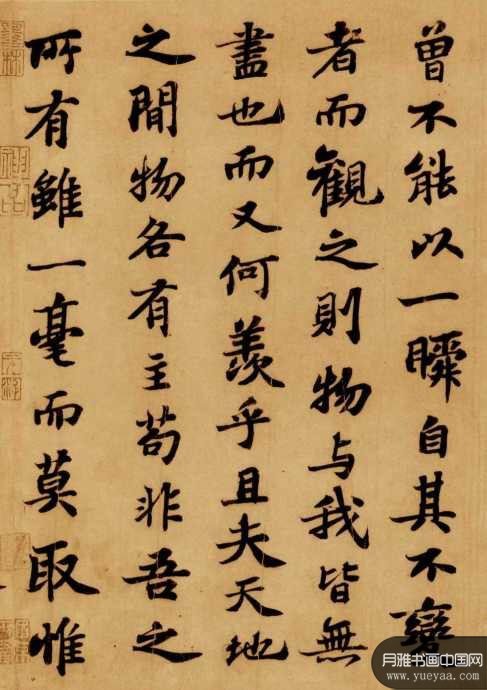 曾不能以一瞬自其不變
者而觀之則物与我皆無
盡也而又何羨乎且夫天地
之間物各有主苟非吾之
所有雖一毫而莫取惟
月雅书画中国网
www.yueyaa.com